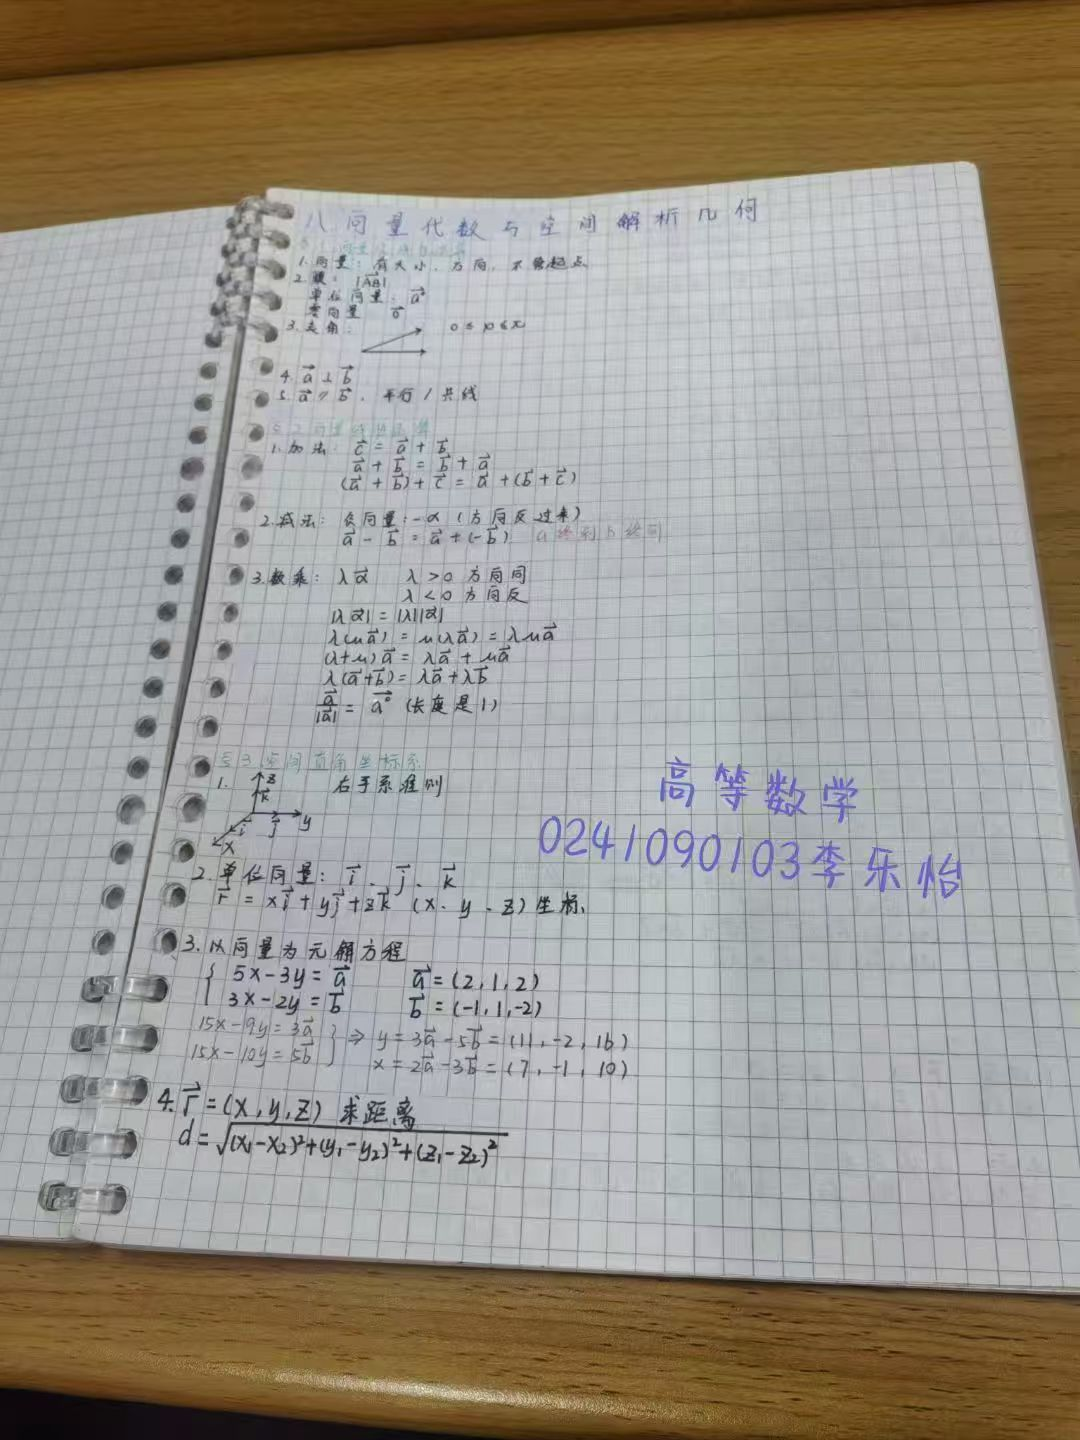 八.向量代数与空间解析几何
1.向量:有大小、方向,不管起点
2.模: |AB|
单位向量: a⁰
零向量 0
3.夹角: 0≤φ≤π
4. a⊥b
5. a∥b, 平行/共线
§2 向量线性运算
1.加法: c = a + b
a + b = b + a
(a + b) + c = a + (b + c)
2.减法: 负向量:-α (方向反过来)
a - b = a + (-b) a终到b终向
3.数乘: λα λ>0 方向同
λ<0 方向反
|λα| = |λ||α|
λ(μa) = μ(λa) = λμa
(λ+μ)a = λa + μa
λ(a+b) = λa+λb
a/|a| = a⁰ (长度是1)
§3 空间直角坐标系
1. z k i j y x 右手系准则
2.单位向量: i、j、k
r = xi+yj+zk (x、y、z)坐标、
3.以向量为元解方程
{ 5x-3y=a a=(2,1,2)
3x-2y=b b=(-1,1,-2)
15x-9y=3a } ⇒ y=3a-5b=(11,-2,16)
15x-10y=5b x=2a-3b=(7,-1,10)
4. r=(x,y,z) 求距离
d=√(x₁-x₂)²+(y₁-y₂)²+(z₁-z₂)²
高等数学
0241090103李乐怡